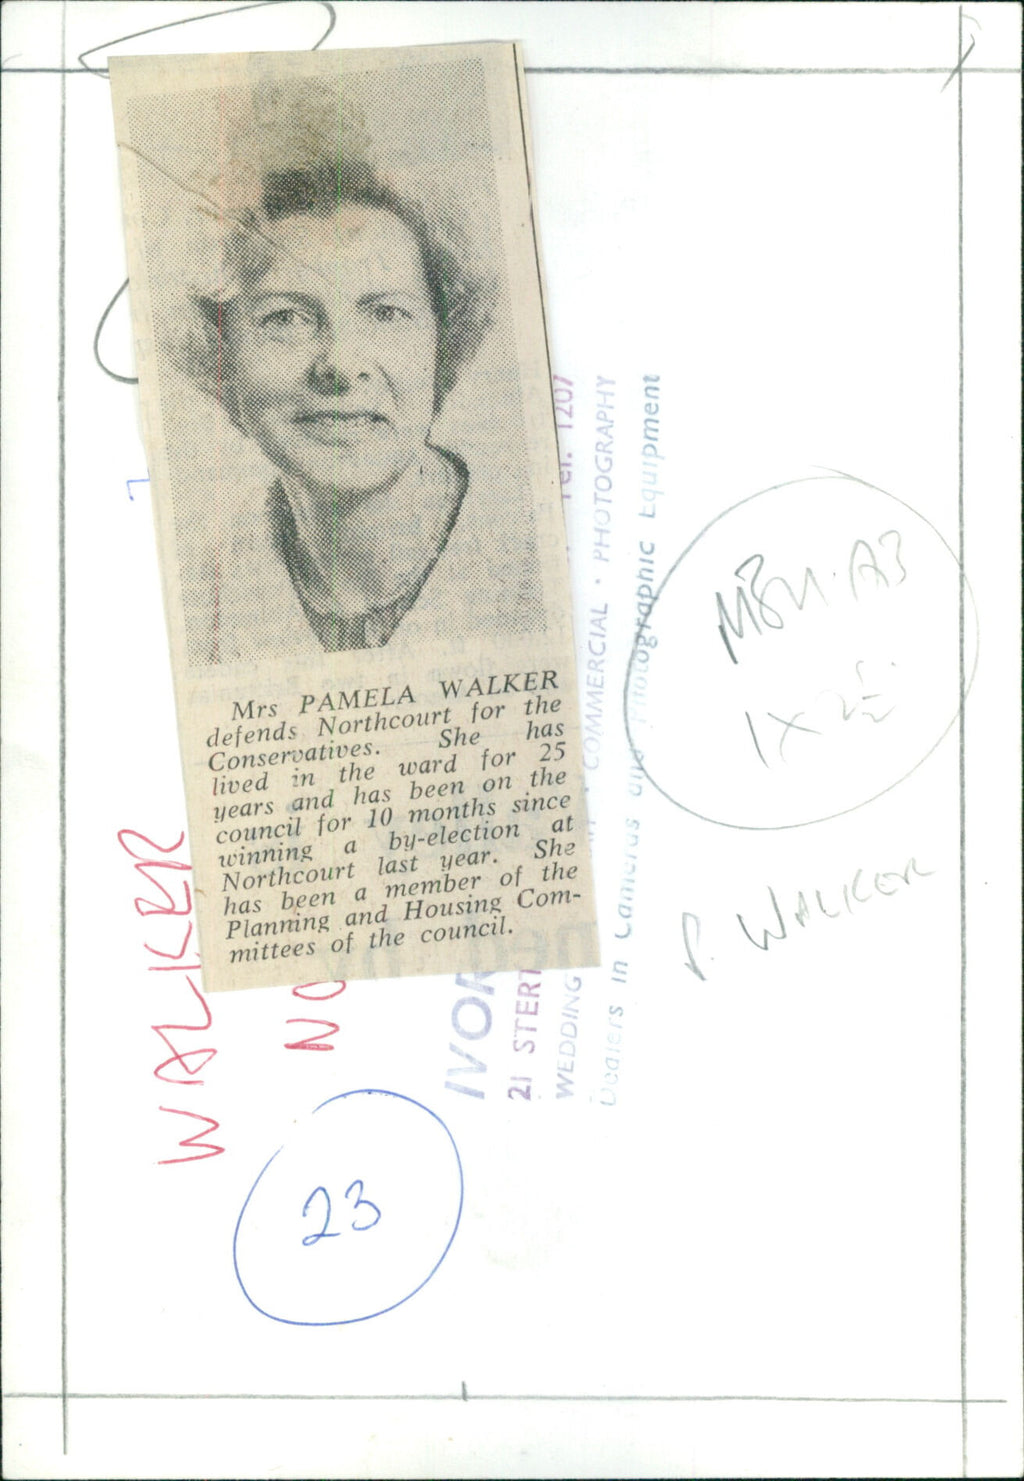 Mrs PAMELA WALKER
defends Northcourt for the
Conservatives. She has
lived in the ward for 25
years and has been on the
council for 10 months since
winning a by-election at
Northcourt last year. She
has been a member of the
Planning and Housing Com-
mittees of the council.
WALKER
NO
23
IVOR
21 STERT
Tel. 1207
WEDDING
COMMERCIAL · PHOTOGRAPHY
Dealers in Cameras and Photographic Equipment
P. WALKER